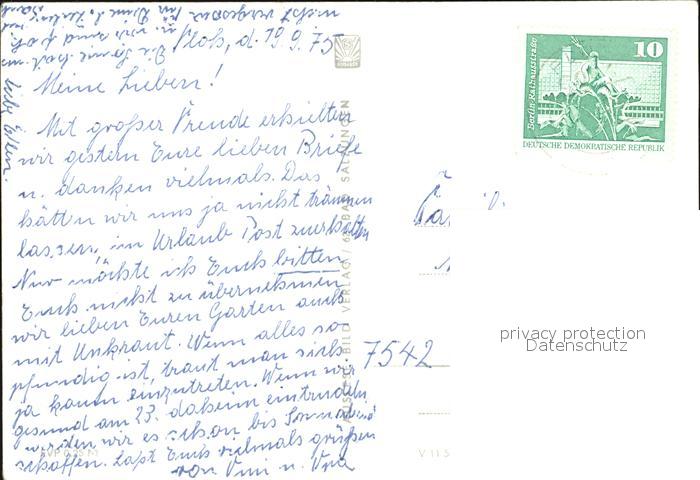 d. 19.9.75
Meine Lieben!
Mit großer Freude erhielten
wir gestern Eure lieben Briefe
u. danken vielmals. Das
hätten wir uns ja nicht träumen
lassen, im Urlaub Post zu erhalten
Nun möchte ich Euch bitten
Euch nicht zu übernehmen
wir lieben Euren Garten auch
mit Unkraut. Wenn alles so
pfundig ist, traut man sich
ja kaum einzutreten. Wenn wir
gesund am 23. daheim eintrudeln
werden wir es schon bis Sonnabend
schaffen. Laßt Euch vielmals grüßen
von
nicht vergessen
EVP 0,25 M
BILD VERLAG / BAD SALZUNGEN
10
Berlin-Rathausstraße
DEUTSCHE DEMOKRATISCHE REPUBLIK
7542
V 11 5
privacy protection
Datenschutz